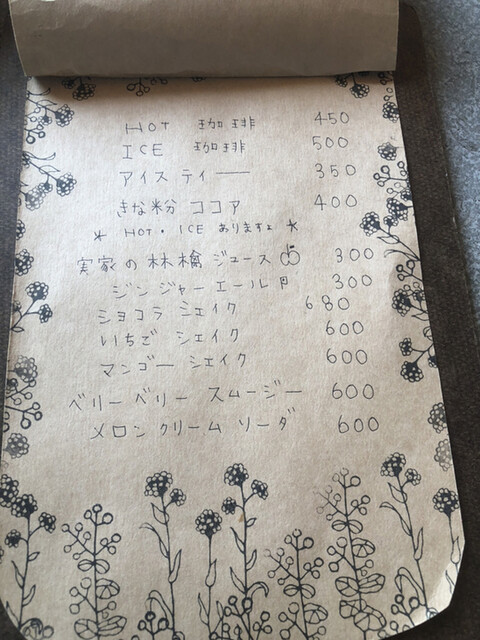 HOT 珈琲 450
ICE 珈琲 500
アイスティー 350
きな粉ココア 400
* HOT・ICE ありますょ *
実家の林檎ジュース 300
ジンジャーエール 300
ショコラ シェイク 680
いちご シェイク 600
マンゴー シェイク 600
ベリーベリー スムージー 600
メロンクリームソーダ 600